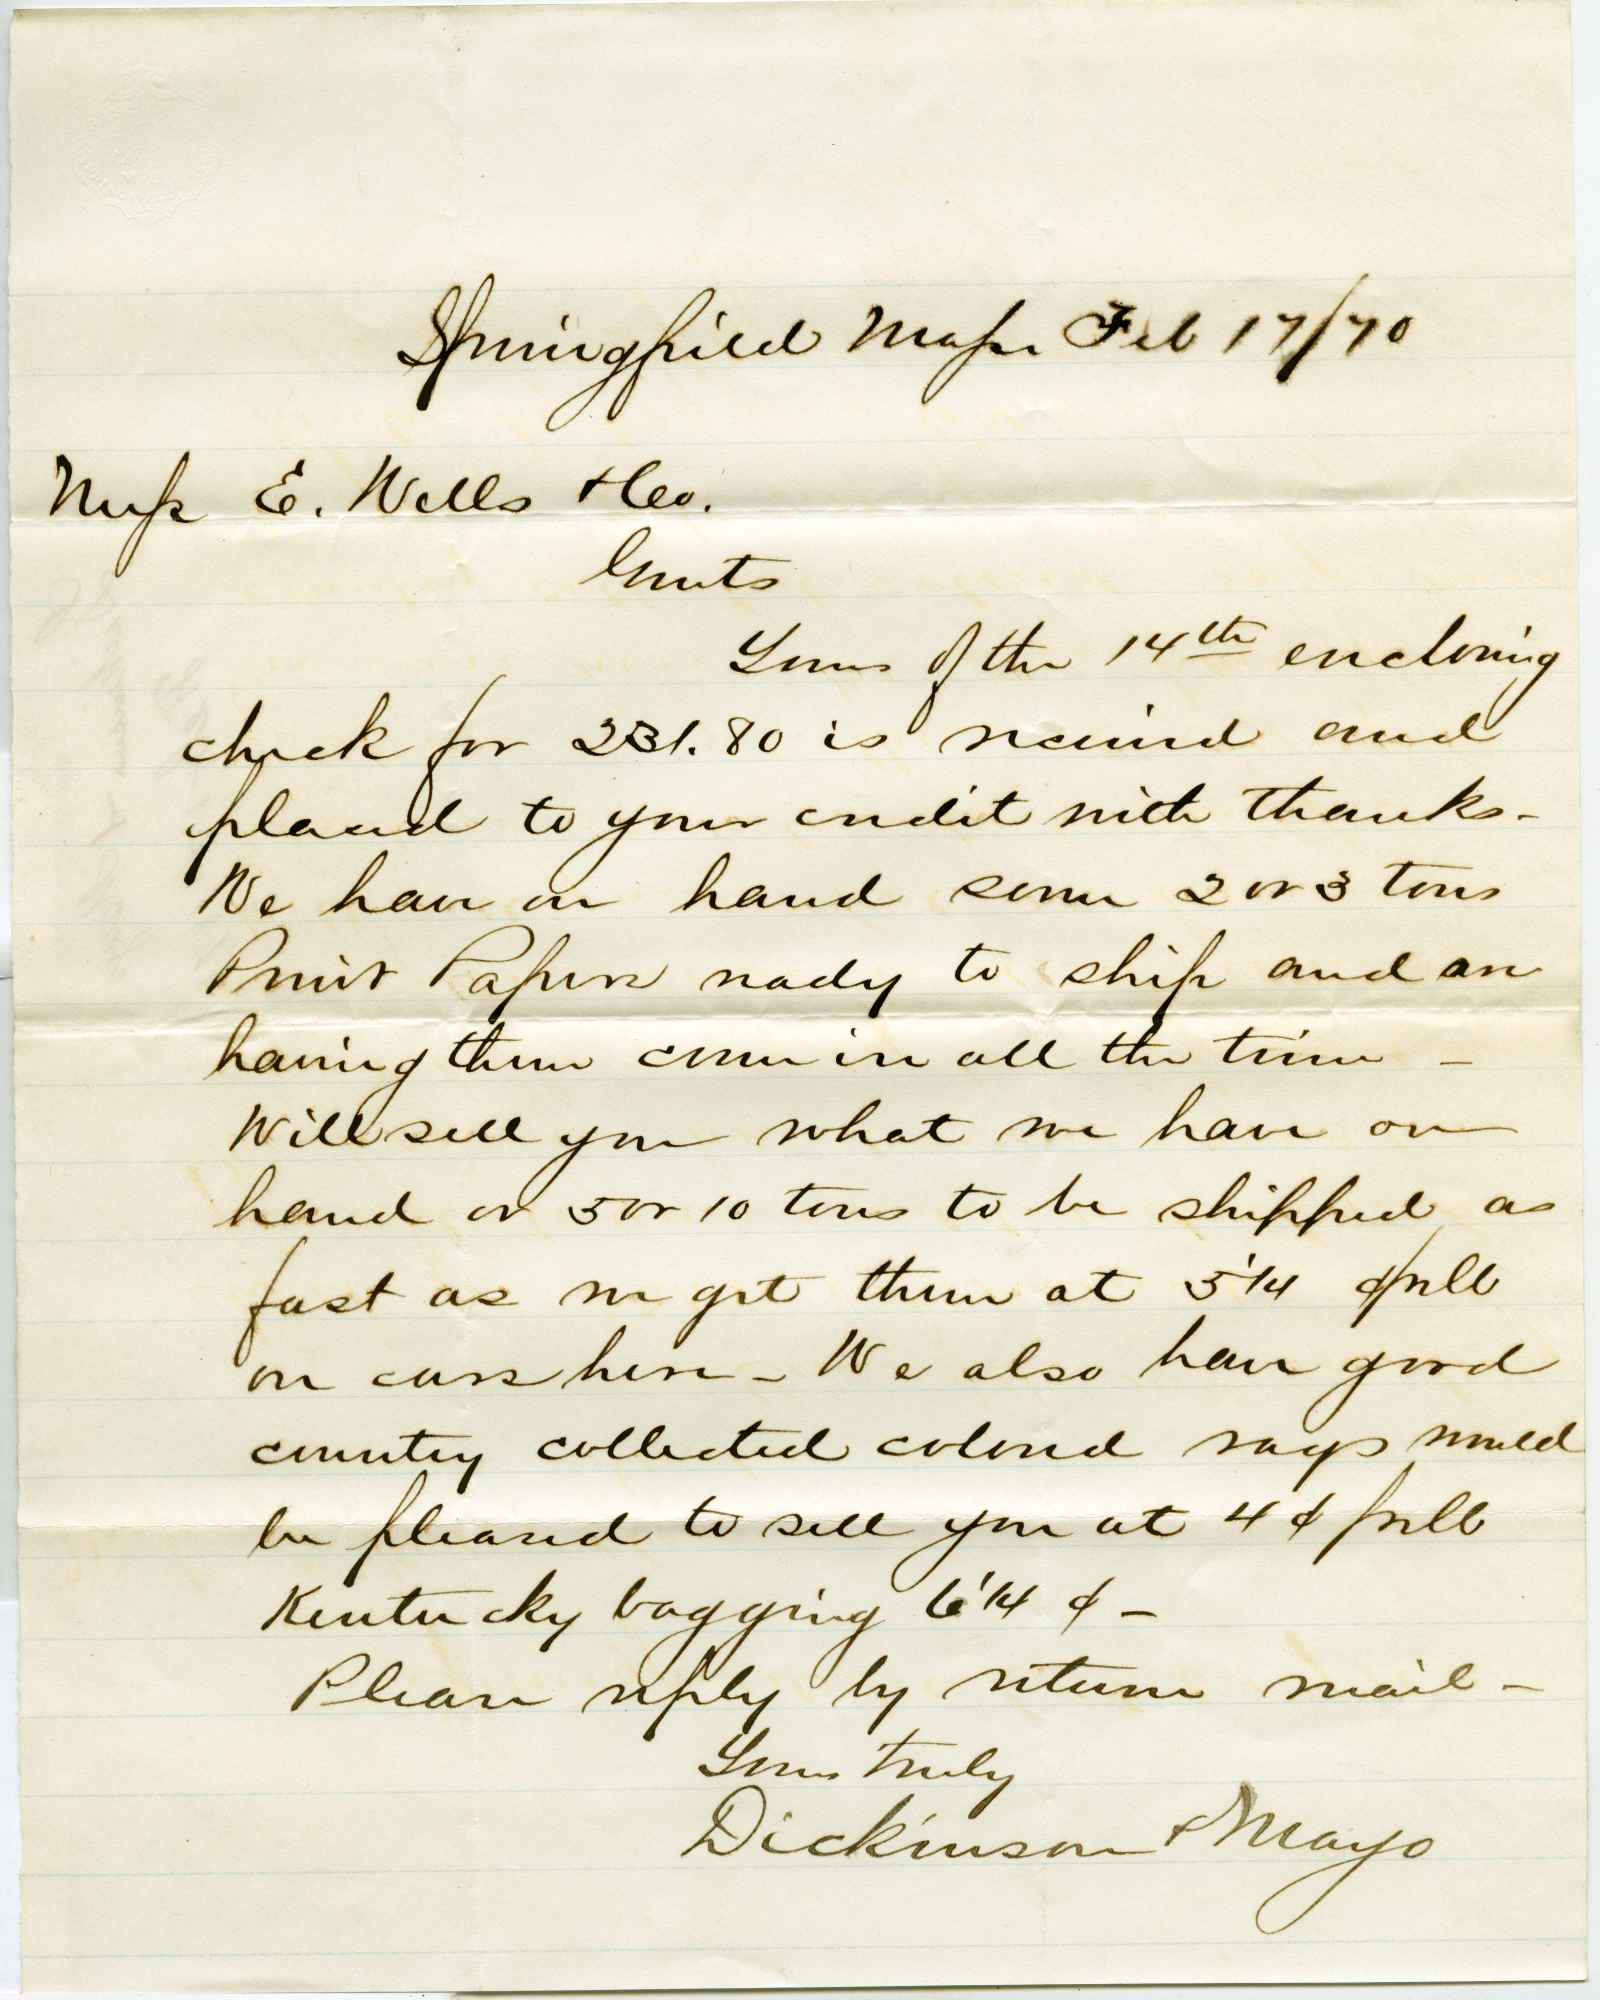 Springfield Mass Feb 17/70
Mess E. Wells & Co.
Gents
Yours of the 14th enclosing
check for 231.80 is received and
placed to your credit with thanks -
We have on hand some 2 or 3 tons
Print Papers ready to ship and are
having them come in all the time -
Will sell you what we have on
hand or 5 or 10 tons to be shipped as
fast as we get them at 5 1/4 ¢ pr lb
on cars here - We also have good
country collected colored rags would
be pleased to sell you at 4 ¢ pr lb
Kentucky bagging 6 1/4 ¢ -
Please reply by return mail -
Yours truly
Dickinson & Mayo